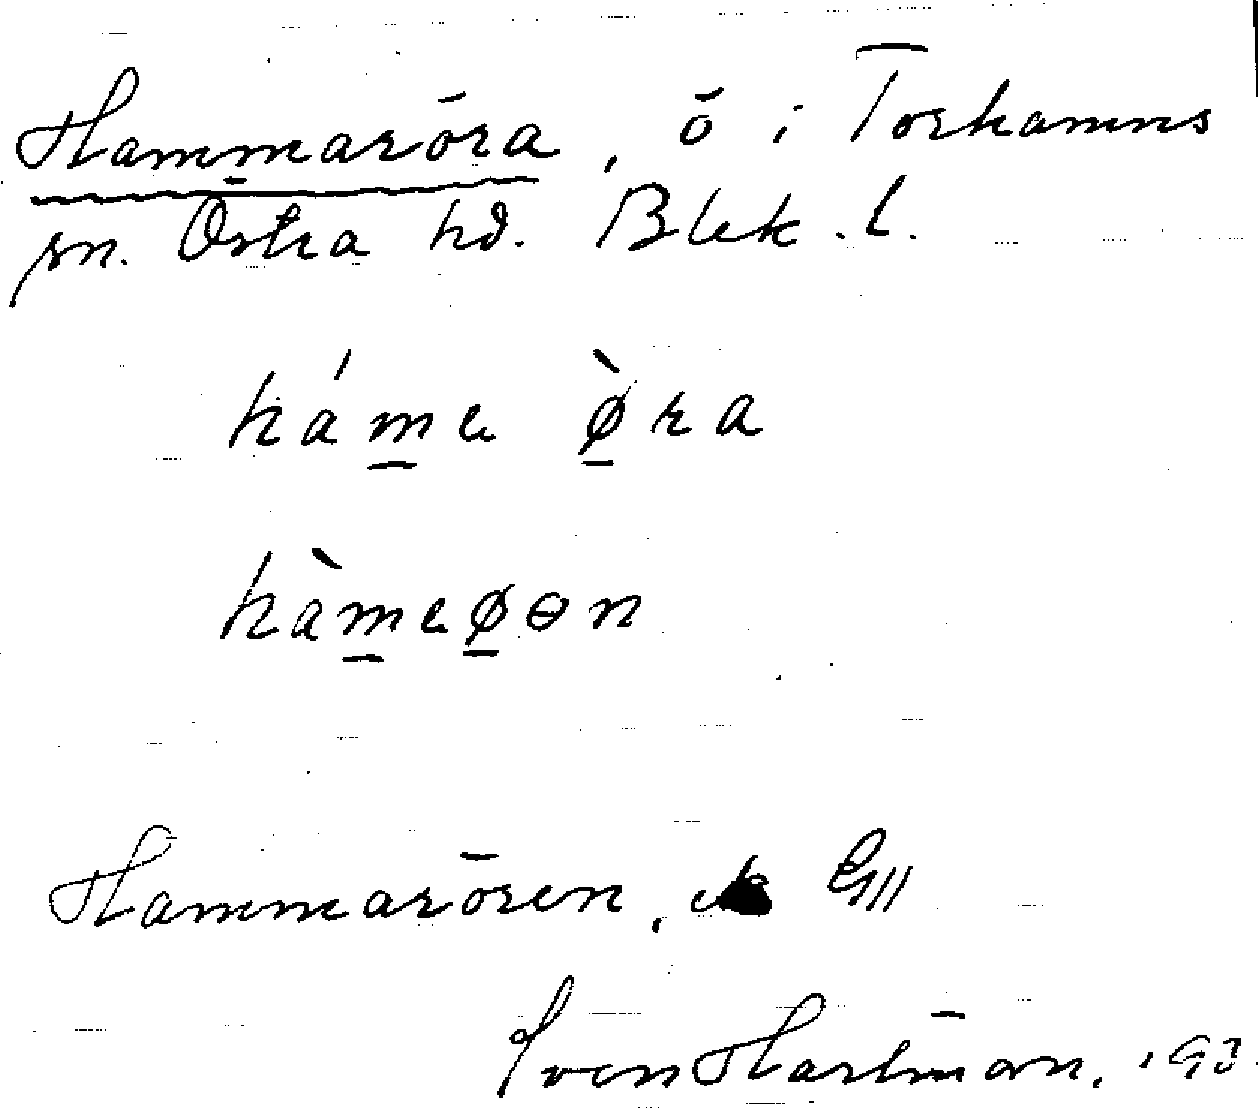 Hammaröra, ö i Torhamns
sn. Östra hd. Blek. l.
háme ø̀ra
hàmeøөn
Hammarören, ek G111
Sven Hartman, 193